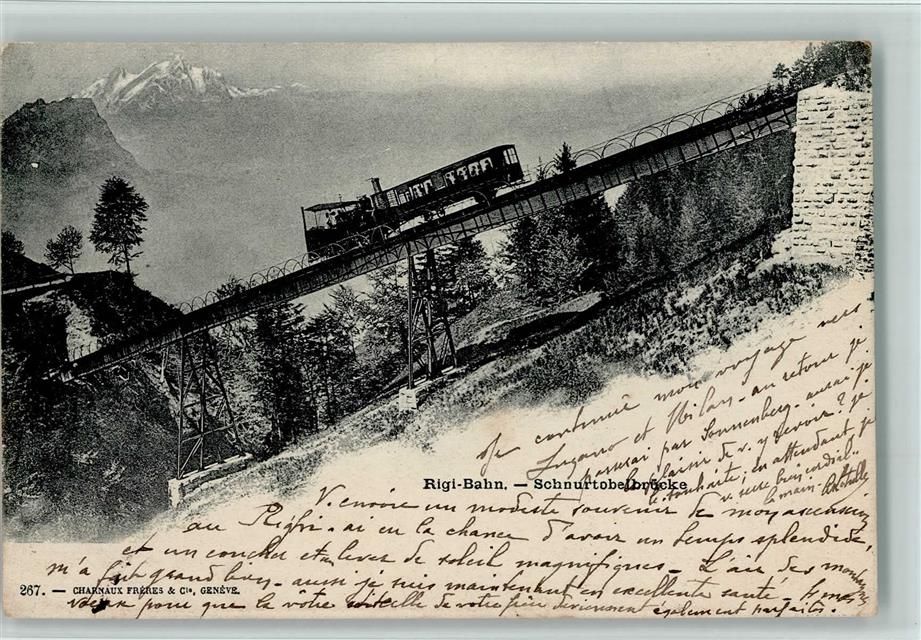 Rigi-Bahn. — Schnurtobelbrücke
V. envoie un modeste souvenir de mon ascension
au Righi. ai eu la chance d'avoir un temps splendide,
et un coucher et un lever de soleil magnifiques — L'air des montagnes
m'a fait grand bien — aussi je suis maintenant en excellente santé —
pour que la vôtre de votre père deviennent également parfaites.
Je continue mon voyage vers
Lugano et Milan — au retour je
passerai par Sonnenberg — aurai je
le plaisir de v. y revoir? Je
le souhaite, en attendant je
v. serre bien cordial.
la main.
267. — CHARNAUX FRÈRES & Cie, GENÈVE.